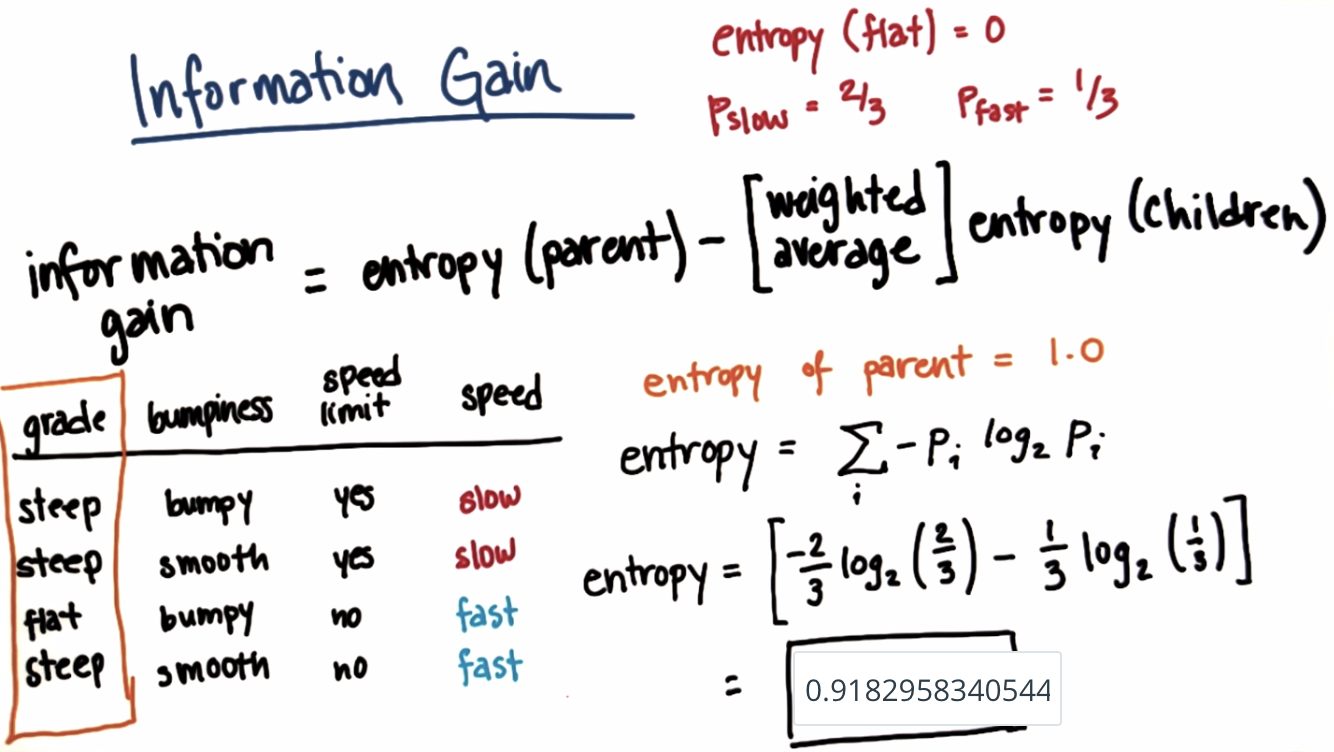 Information Gain
entropy (flat) = 0
Pslow = 2/3 Pfast = 1/3
information gain = entropy (parent) - [weighted average] entropy (children)
entropy of parent = 1.0
grade bumpiness speed limit speed
steep bumpy yes slow
steep smooth yes slow
flat bumpy no fast
steep smooth no fast
entropy = Σi -Pi log2 Pi
entropy = [-2/3 log2 (2/3) - 1/3 log2 (1/3)]
= 0.9182958340544